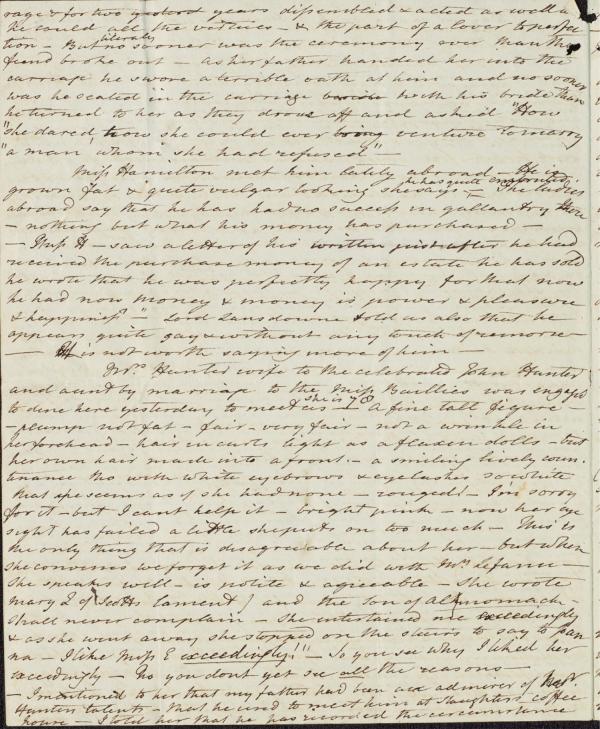 rage & for two years dissembled & acted as well as
he could all the virtues - & the part of a lover to perfec
tion - But no sooner literally was the ceremony over than the
fiend broke out - as her father handed her into the
carriage he swore a terrible oath at him and no sooner
was he seated in the carriage with his bride than
he turned to her as they drove off and asked "How
"she dared, how she could ever venture to marry
"a man whom she had refused" -
Miss Hamilton met him lately abroad - He is
grown fat & quite vulgar looking she says - he has quite The ladies
abroad say that he has had no success in gallantry there
- nothing but what his money has purchased -
- Miss H - saw a letter of his written just after he had
received the purchase money of an estate he has sold
he wrote that he was perfectly happy for that now
he had now money & money is power & pleasure
& happiness" - Lord Lansdowne told us also that he
appears quite gay & without any touch of remorse
- It is not worth saying more of him -
Mrs. Hunter wife to the celebrated John Hunter
and aunt by marriage to the Miss Baillies was engaged
to dine here yesterday to meet us - she is 78 A fine tall figure -
- plump not fat - fair - very fair - not a wrinkle in
her forehead - hair in curls light as a flaxen dolls - but
her own hair made into a front - a smiling lively coun
tenance tho with white eyebrows & eyelashes so white
that she seems as if she had none - rouged! - I'm sorry
for it - but I cant help it - bright pink - now her eye
sight has failed a little she puts on too much - This is
the only thing that is disagreeable about her - but when
she converses we forget it as we did with Mrs. Lefanu -
She speaks well - is polite & agreeable - She wrote
Mary Q of Scotts lament] and the son of Alknomack
shall never complain - She entertained me exceedingly
& as she went away she stopped on the stairs to say to Fan
na - I like Miss E exceedingly!" - So you see why I liked her
exceedingly - No you dont yet see all the reasons -
- I mentioned to her that my father had been an admirer of
Hunters talents - that he used to meet him at Slaughters coffee
house - I told her that he has recorded the circumstance